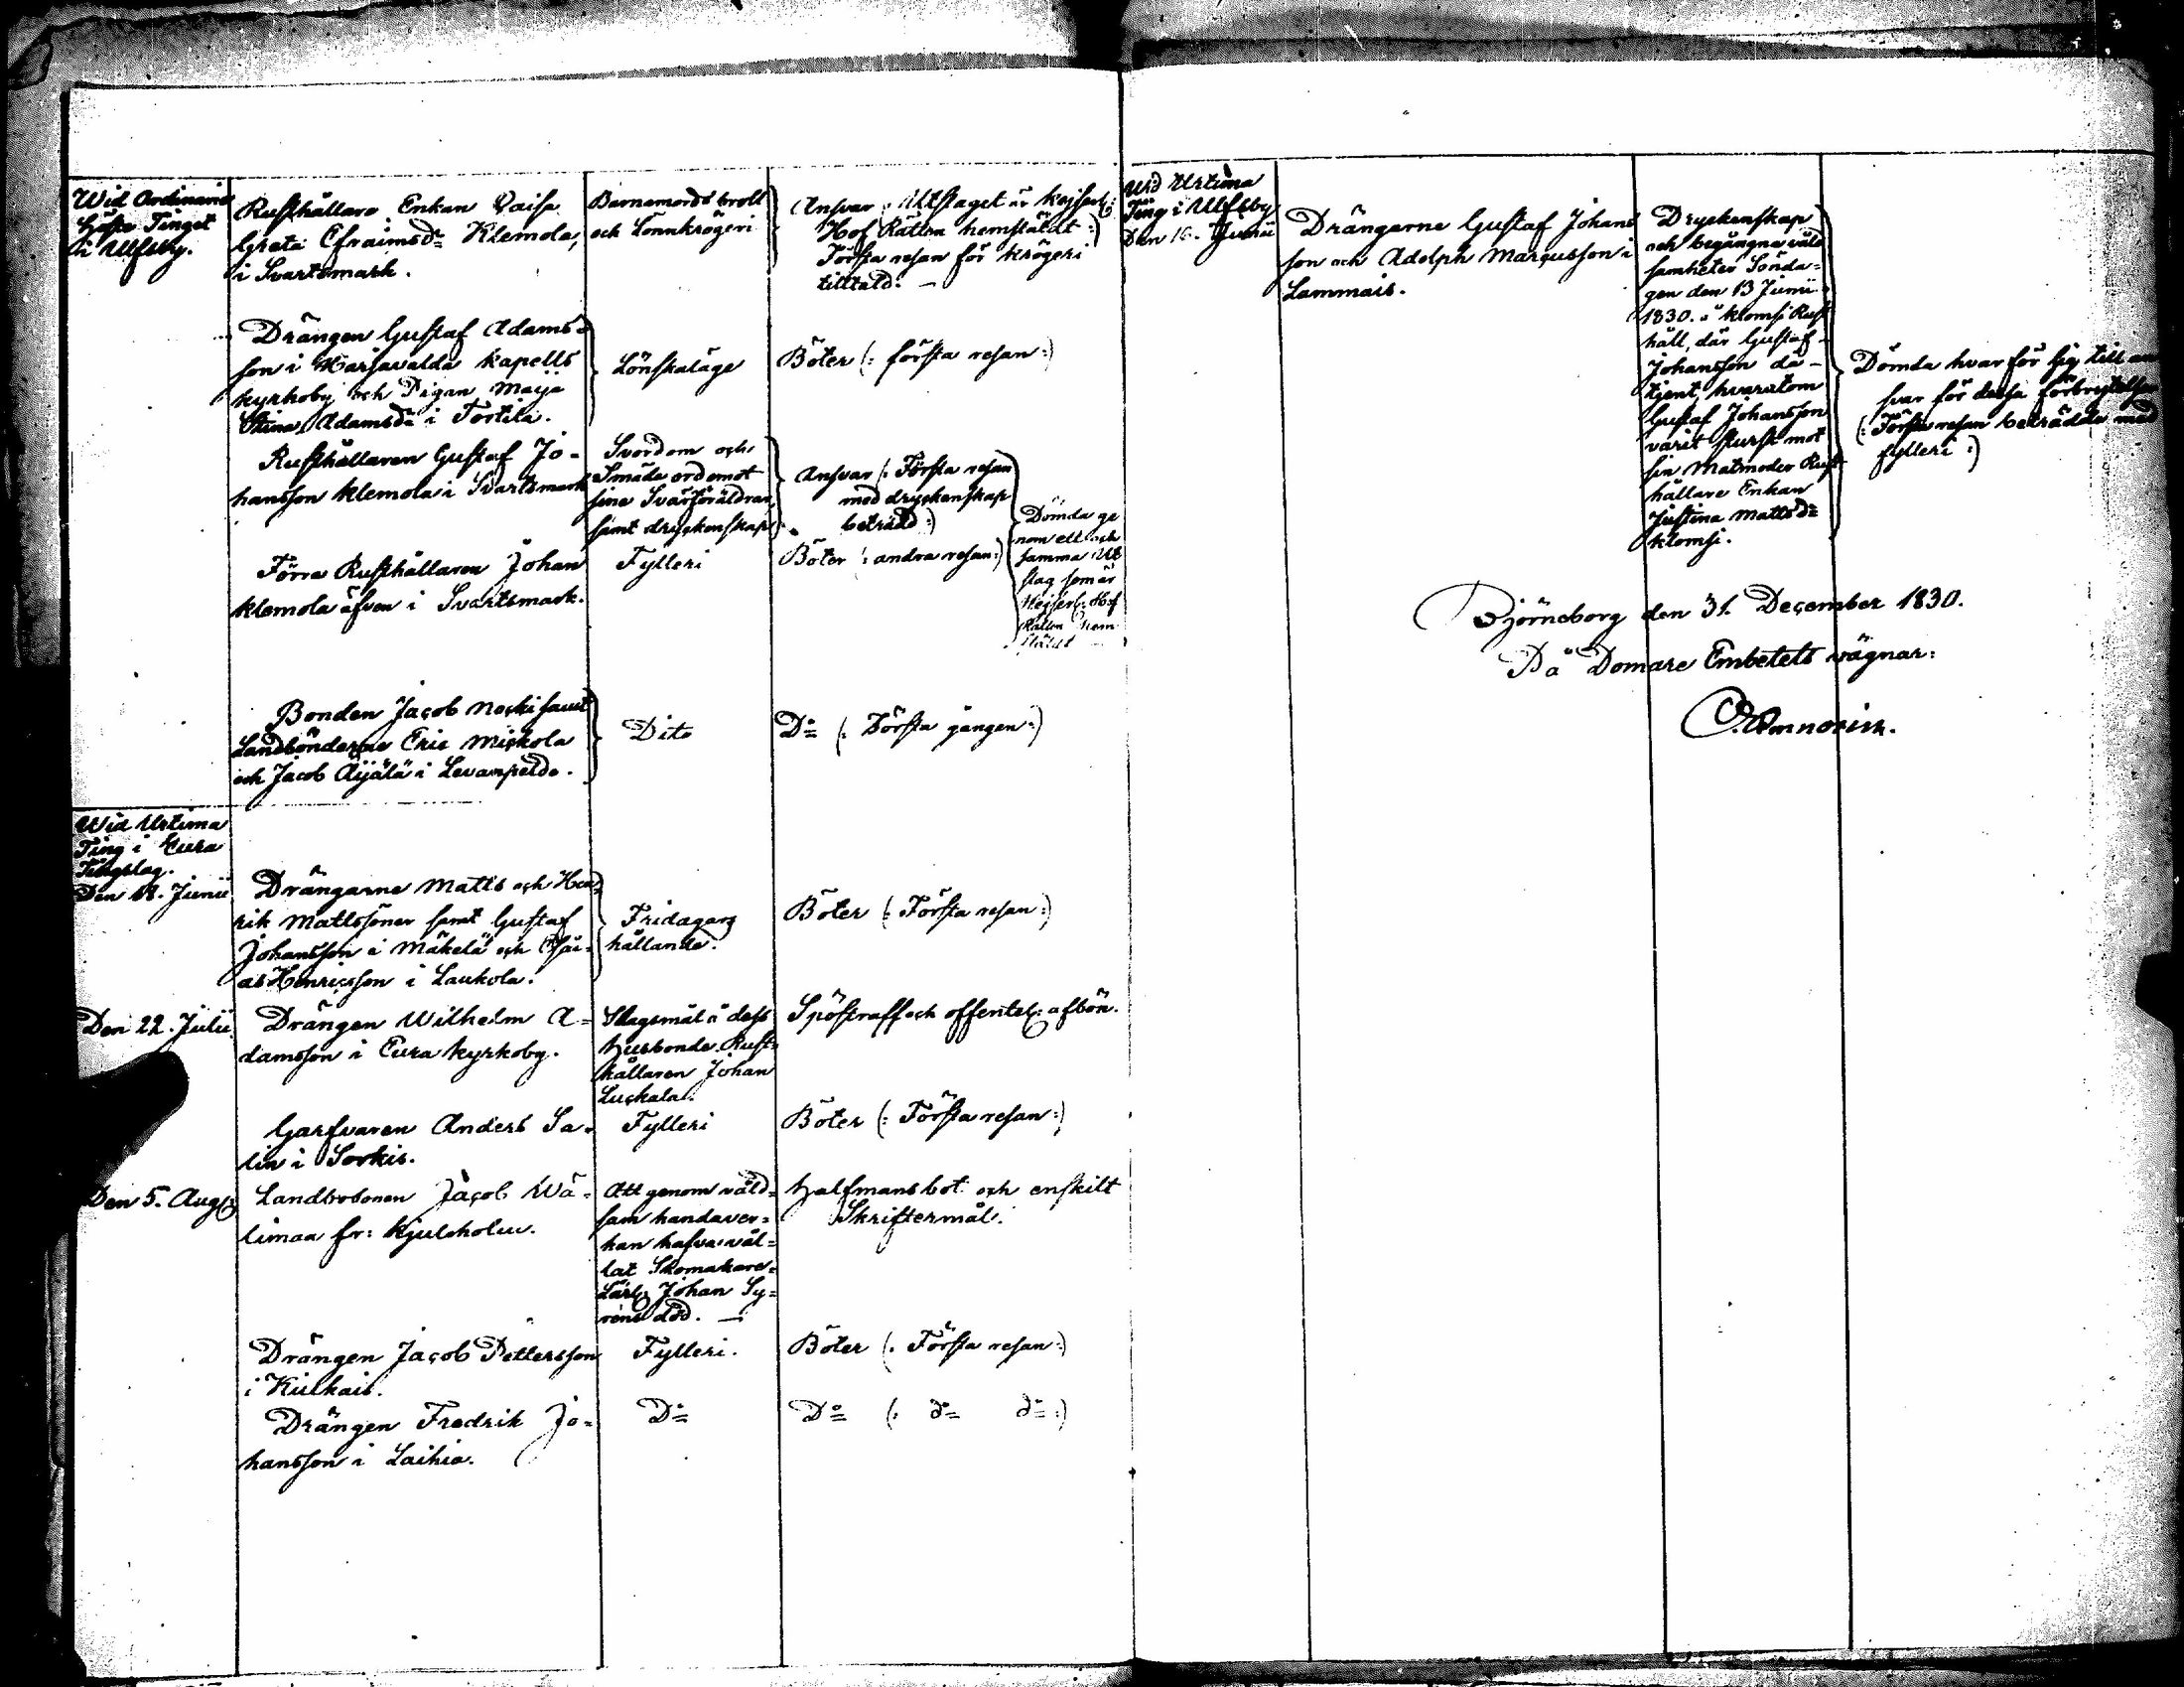 Wid Ordinarie
Höste Tinget
i Ulfsby.
Rusthållare Enkan Caisa
Greta Efraimsdr Klemola,
i Svartsmark.
Barnamords brott
och Lönnkrögeri
Ansvar (: Utslaget är Kejserl:
Hof Rätten hemstäldt :)
Första resan för krögeri
tilltald. —
Drängen Gustaf Adams=
son i Harjavalda Kapells
kyrkoby och Pigan Maija
Stina Adamsdr i Tortila.
Lönskaläge
Böter (: första resan :)
Rusthållaren Gustaf Jo=
hansson Klemola i Svartsmark
Svordom och
Smäde ord emot
sine Svärföräldrar,
samt dryckenskap
Ansvar (: Första resan
med dryckenskap
beträdd :)
Förra Rusthållaren Johan
Klemola äfven i Svartsmark.
Fylleri
Böter (: andra resan :)
Dömda ge
nom ett och
samma Ut
slag som är
Kejserl: Hof
Rätten hem
stäldt
Bonden Jacob Nocki samt
Landbönderne Eric Mickola
och Jacob Äijälä i Levanpelda.
Dito
Do (: Första gången :)
Wid Urtima
Ting i Eura
Tingslag.
Den 18. Junii
Drängarne Matts och Hen=
rik Mattssöner samt Gustaf
Johansson i Mäkelä och Esai=
as Henricsson i Laukola.
Fridagars
hållande.
Böter (: Första resan :)
Den 22. Julii
Drängen Wilhelm A=
damsson i Eura Kyrkoby.
Slagsmål å dess
husbonde Rust=
hållaren Johan
Luckala.
Spöstraff och offentel: afbön.
Garfvaren Anders Sa=
lin i Sorkis.
Fylleri
Böter (: Första resan :)
Den 5. Aug:
Landbobonen Jacob Wä=
limaa fr: Kjuloholm.
Att genom våld=
sam handaver=
kan hafva vål=
lat Skomakare=
Lärl: Johan Sy=
réns död. —
Halfmansbot och enskilt
Skriftermål.
Drängen Jacob Pettersson
i Kiukais.
Fylleri.
Böter (: Första resan :)
Drängen Fredrik Jo=
hansson i Laihia.
Do
Do (: do do :)
Wid Urtima
Ting i Ulfsby
Den 16. Junii
Drängarne Gustaf Johans
son och Adolph Marcusson i
Lammais.
Dryckenskap
och begångna våld
samheter Sönda=
gen den 13 Junii
1830. å Klomsi Rust
håll, där Gustaf
Johansson då
tjent, hvarutom
Gustaf Johansson
varit sturst mot
sin Matmoder Rust
hållare Enkan
Justina Mattsdr
Klomsi.
Dömda hvar för sig till an
svar för dessa förbrytelser
(: Första resan beträdda med
fylleri :)
Björneborg den 31. December 1830.
På Domare Embetets vägnar: